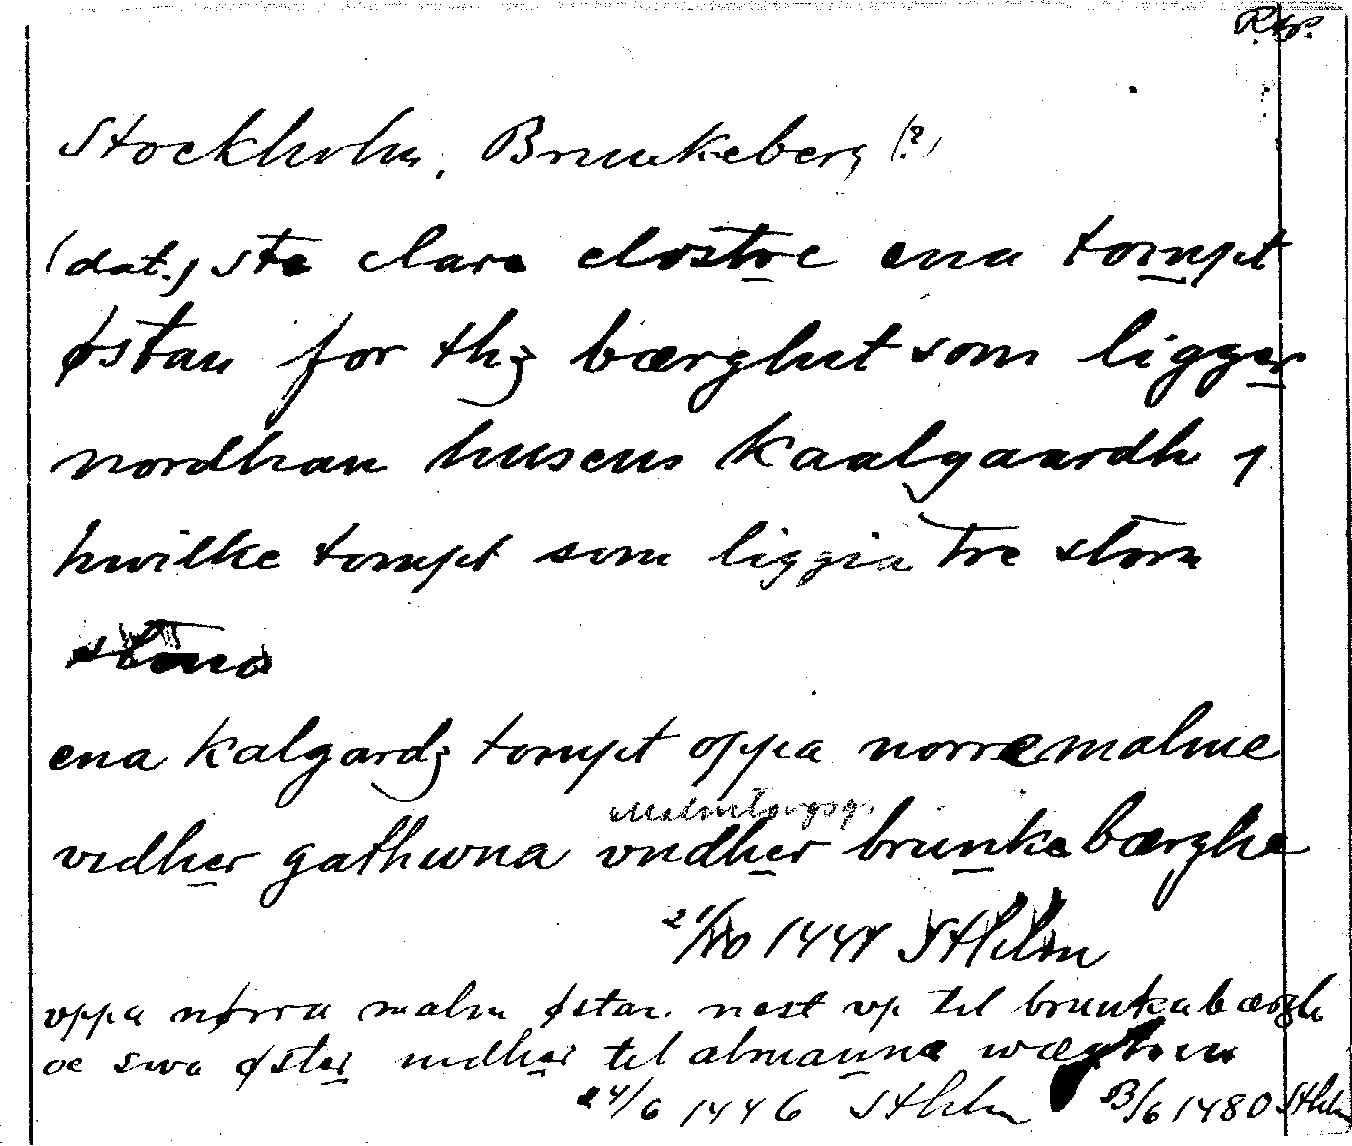 Rep.
Stockholm, Brunkeberg (?)
(dat.) sta clara clostre ena tompt
østan for thz bærghit som ligger
nordhan husens kaalgaardh j
hwilke tompt som liggia tre store
stena
ena kalgardz tompt oppa norremalme
Malmtorgsg.
vidher gathwna vndher brunkebærghe
21/10 1441 Sthlm
vppa nørra malm østan nest vp til brunkabærgh
oc swa øster nidher til almanna wæghen
24/6 1446 Sthlm B/6 1480 Sthlm